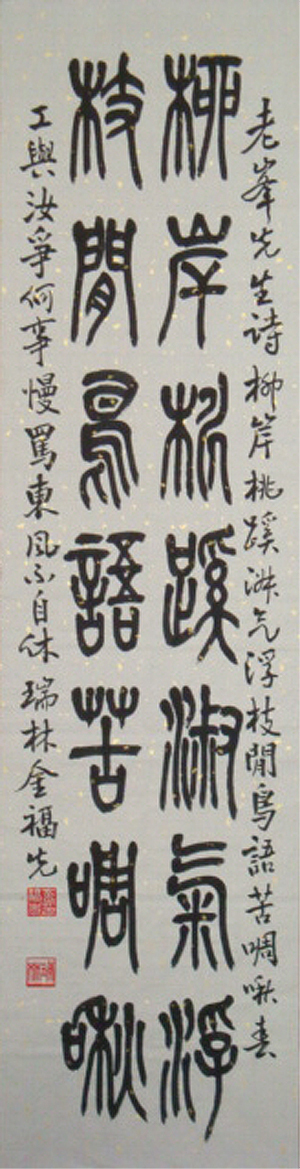 老峯先生詩柳岸桃蹊淑气浮枝閒鳥語苦啁啾春
柳岸桃蹊淑氣浮
枝閒鳥語苦啁啾
工與汝爭何事慢罵東風不自休 瑞林金福先